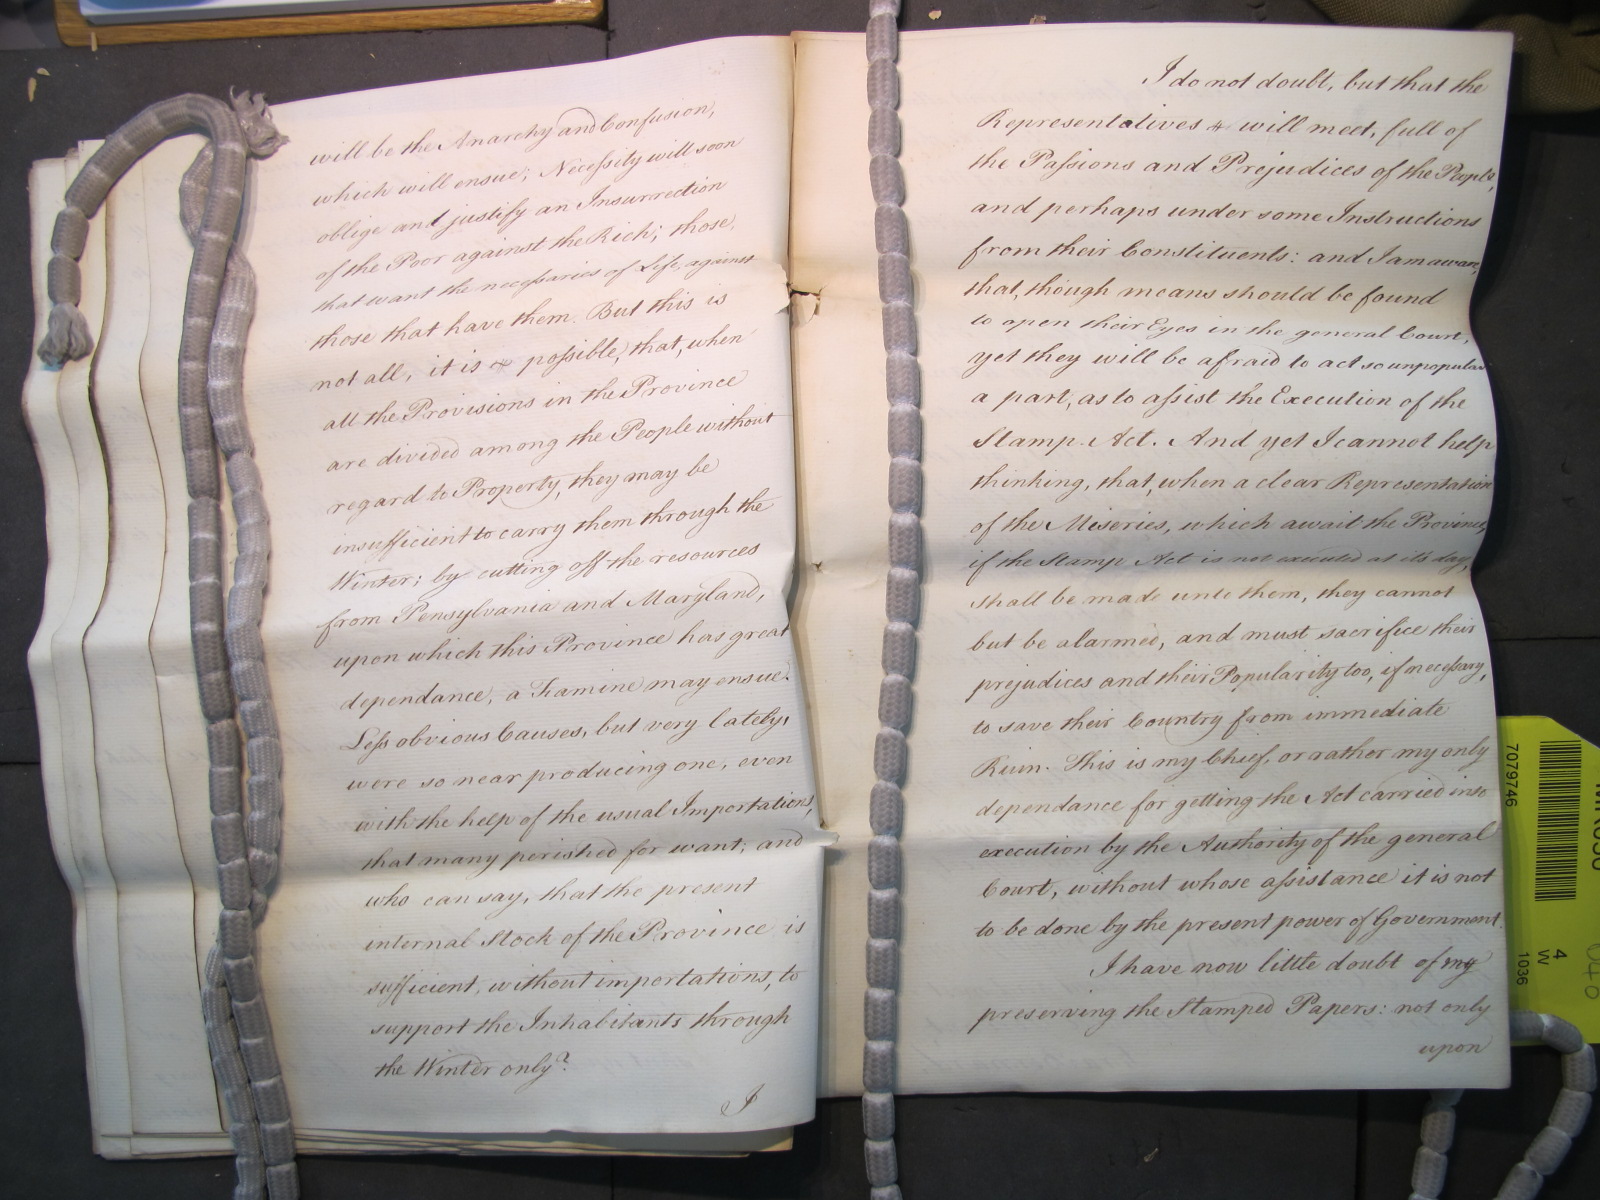 will be the Anarchy and Confusion,
which will ensue; Necessity will soon
oblige and justify an Insurrection
of the Poor against the Rich; those,
that want the necessaries of Life, against
those that have them. But this is
not all, it is possible, that, when
all the Provisions in the Province
are divided among the People without
regard to Property, they may be
insufficient to carry them through the
Winter; by cutting off the resources
from Pensylvania and Maryland,
upon which this Province has great
dependance, a Famine may ensue.
Less obvious Causes, but very lately,
were so near producing one, even
with the help of the usual Importations,
that many perished for want; and
who can say, that the present
internal Stock of the Province is
sufficient, without importations, to
support the Inhabitants through
the Winter only?
I
I do not doubt, but that the
Representatives will meet, full of
the Passions and Prejudices of the People,
and perhaps under some Instructions
from their Constituents: and I am aware,
that, though means should be found
to open their Eyes in the general Court,
yet they will be afraid to act so unpopular
a part, as to assist the Execution of the
Stamp Act. And yet I cannot help
thinking, that, when a clear Representation
of the Miseries, which await the Province,
if the Stamp Act is not executed at its day,
shall be made unto them, they cannot
but be alarmed, and must sacrifice their
prejudices and their Popularity too, if necessary,
to save their Country from immediate
Ruin. This is my Chief, or rather my only
dependance for getting the Act carried into
execution by the Authority of the general
Court, without whose assistance it is not
to be done by the present power of Government.
I have now little doubt of my
preserving the Stamped Papers: not only
upon
7079746
4
W
1036